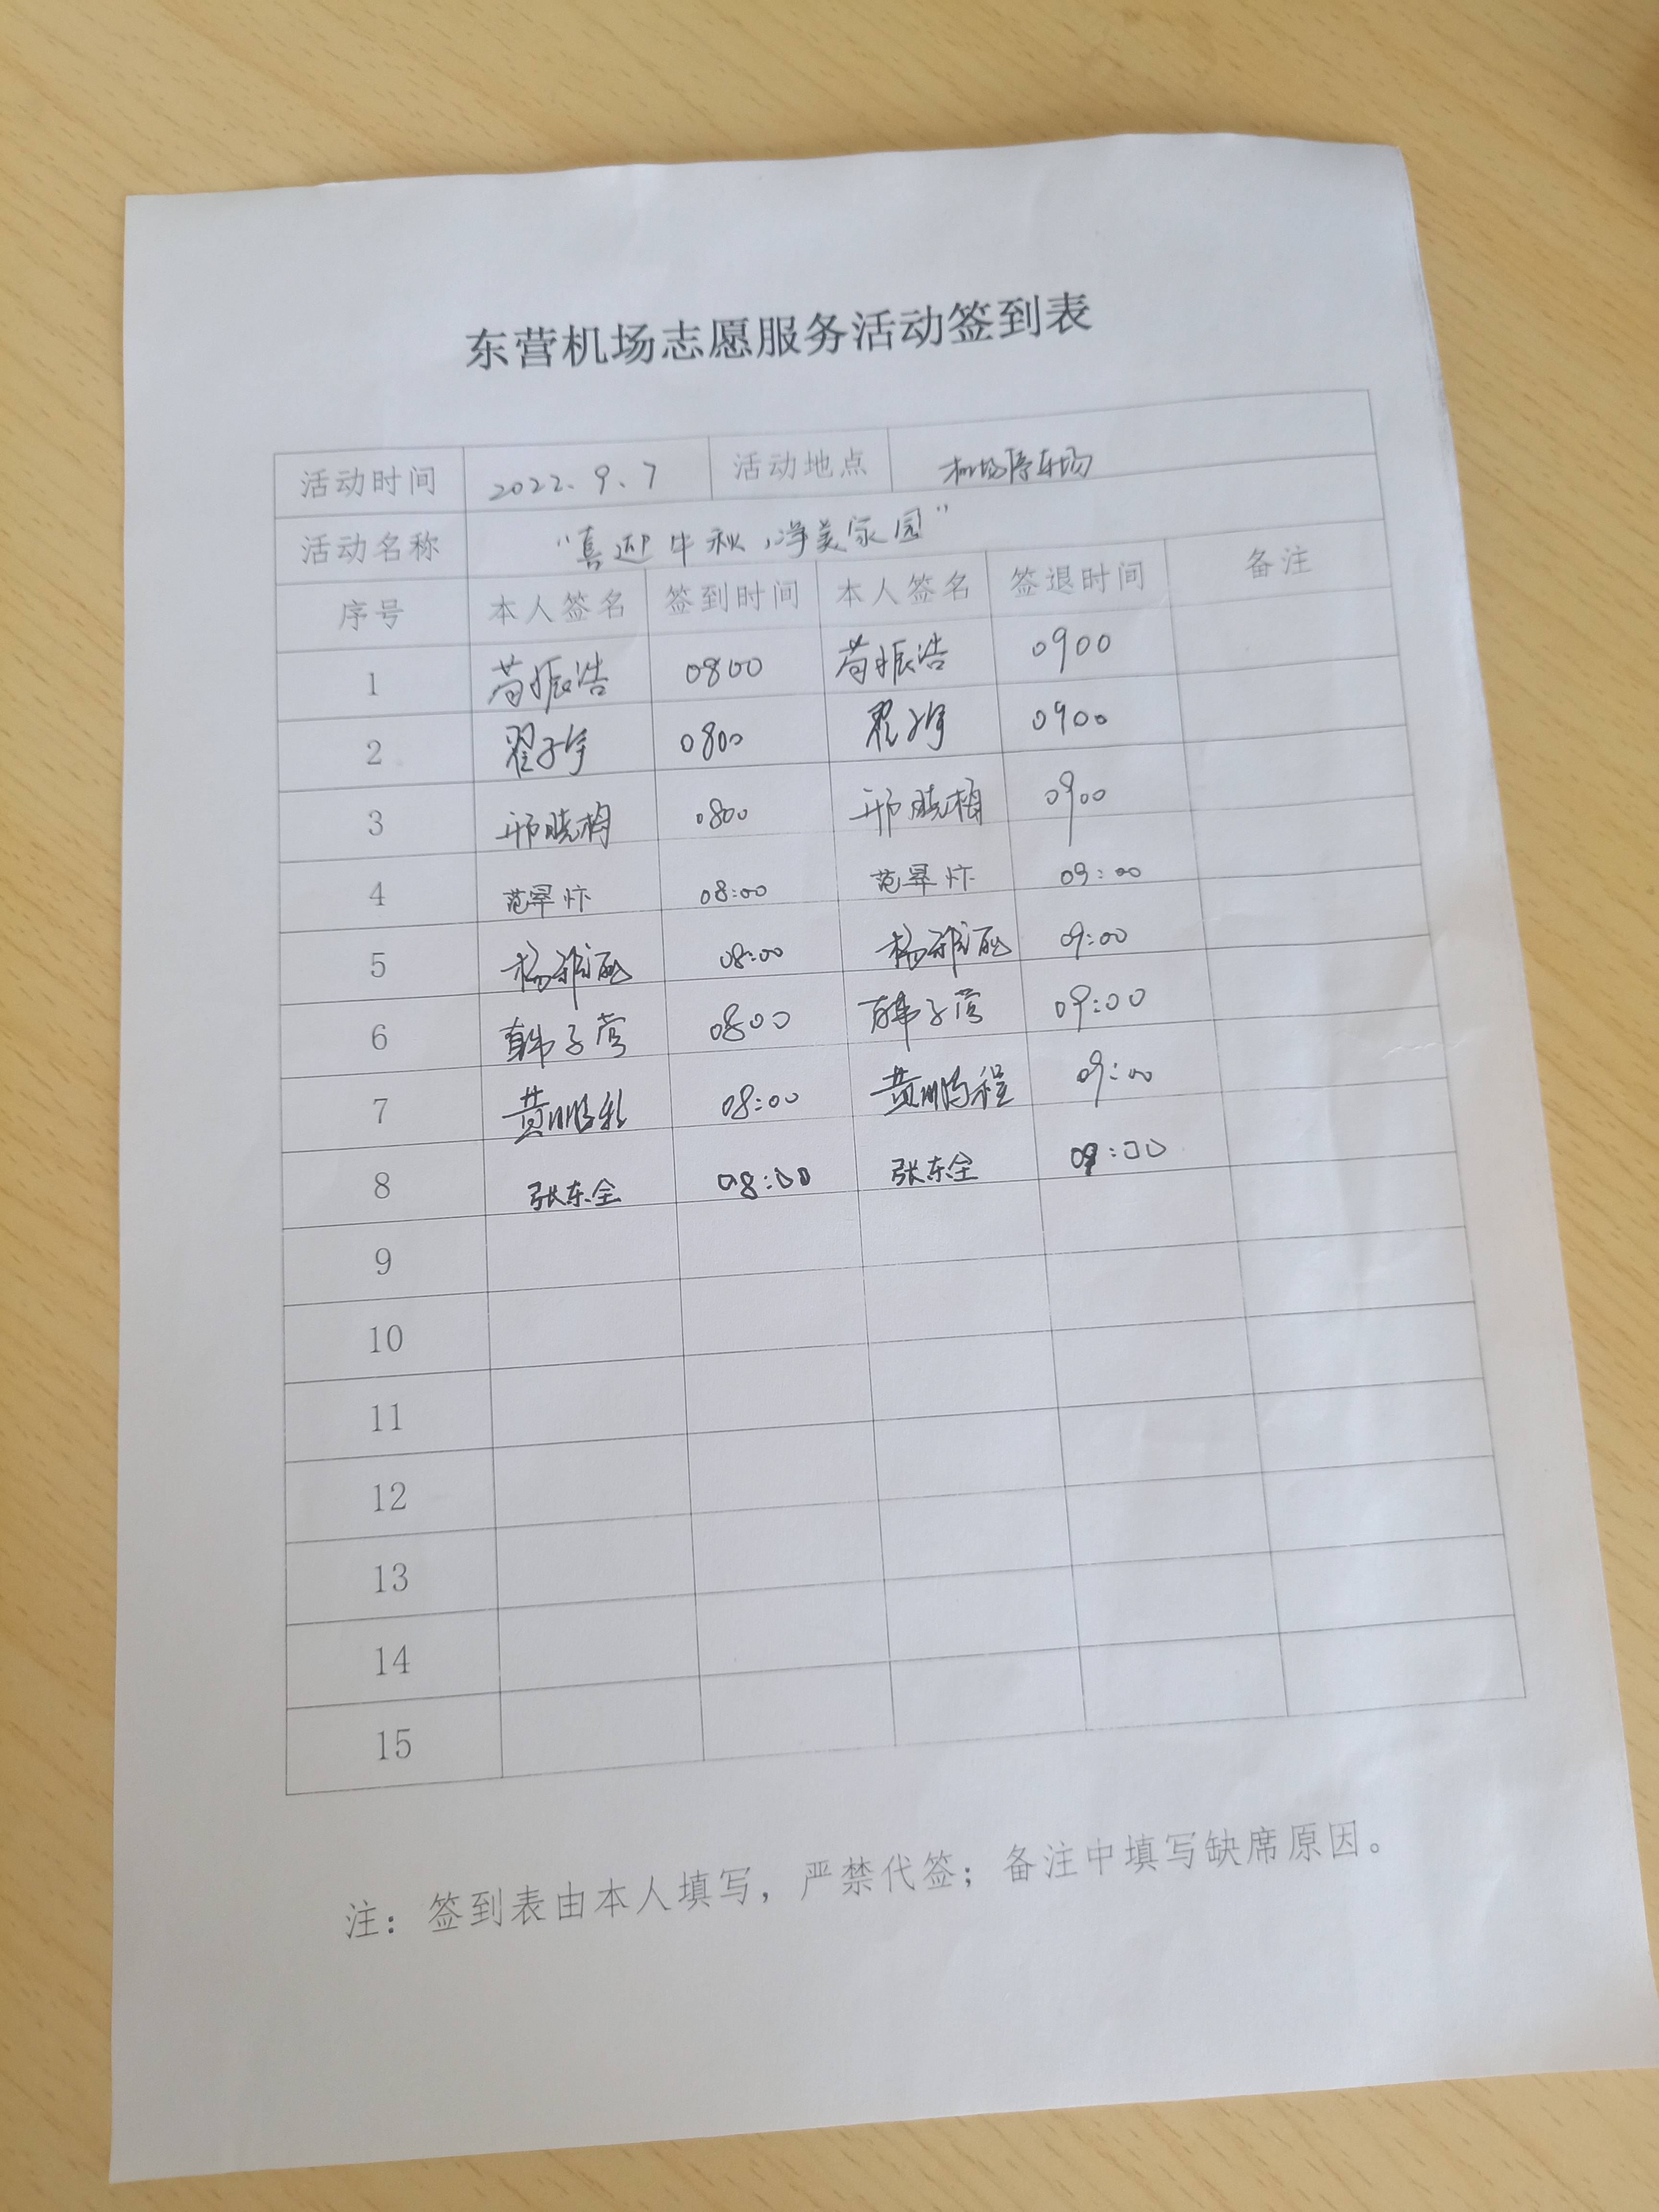 东营机场志愿服务活动签到表
活动时间 2022.9.7 活动地点 机场停车场
活动名称 "喜迎中秋,净美家园"
序号 本人签名 签到时间 本人签名 签退时间 备注
1 苟振浩 0800 苟振浩 0900
2 翟子宇 0800 翟子宇 0900
3 邢晓楠 0800 邢晓楠 0900
4 范 08:00 范 09:00
5 杨 08:00 杨 09:00
6 韩子营 0800 韩子营 09:00
7 黄鹏程 08:00 黄鹏程 09:00
8 张东全 08:00 张东全 09:00
9
10
11
12
13
14
15
注：签到表由本人填写，严禁代签；备注中填写缺席原因。